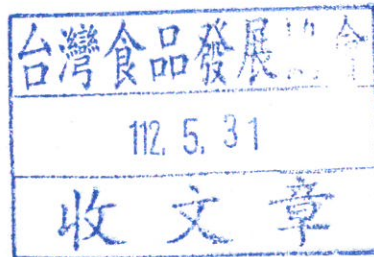 台灣食品發展協會
112. 5. 31
收文章